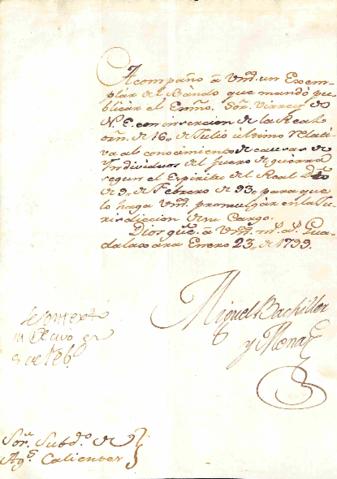 Acompaño à Vmd. un Exem-
plar del Bando que mandó pu-
blicar el Exmo. Sor. Virrey de
N. E. con insercion de la Real
orn. de 16. de Julio ultimo relati-
va al conocimiento de causas de
Individuos del fuero de guerra
segun el Espiritu del Real Dto.
de 9. de Febrero de 93, para que
lo haga Vmd. promulgar en la Ju-
risdiccion de su Cargo.
Dios gue. à Vmd. ms. as. Gua-
dalaxara Enero 23, de 1799.
Miguel Bachiller
y Mena
Se contextó
en
Sor. Subdo. de
Ags. Calientes